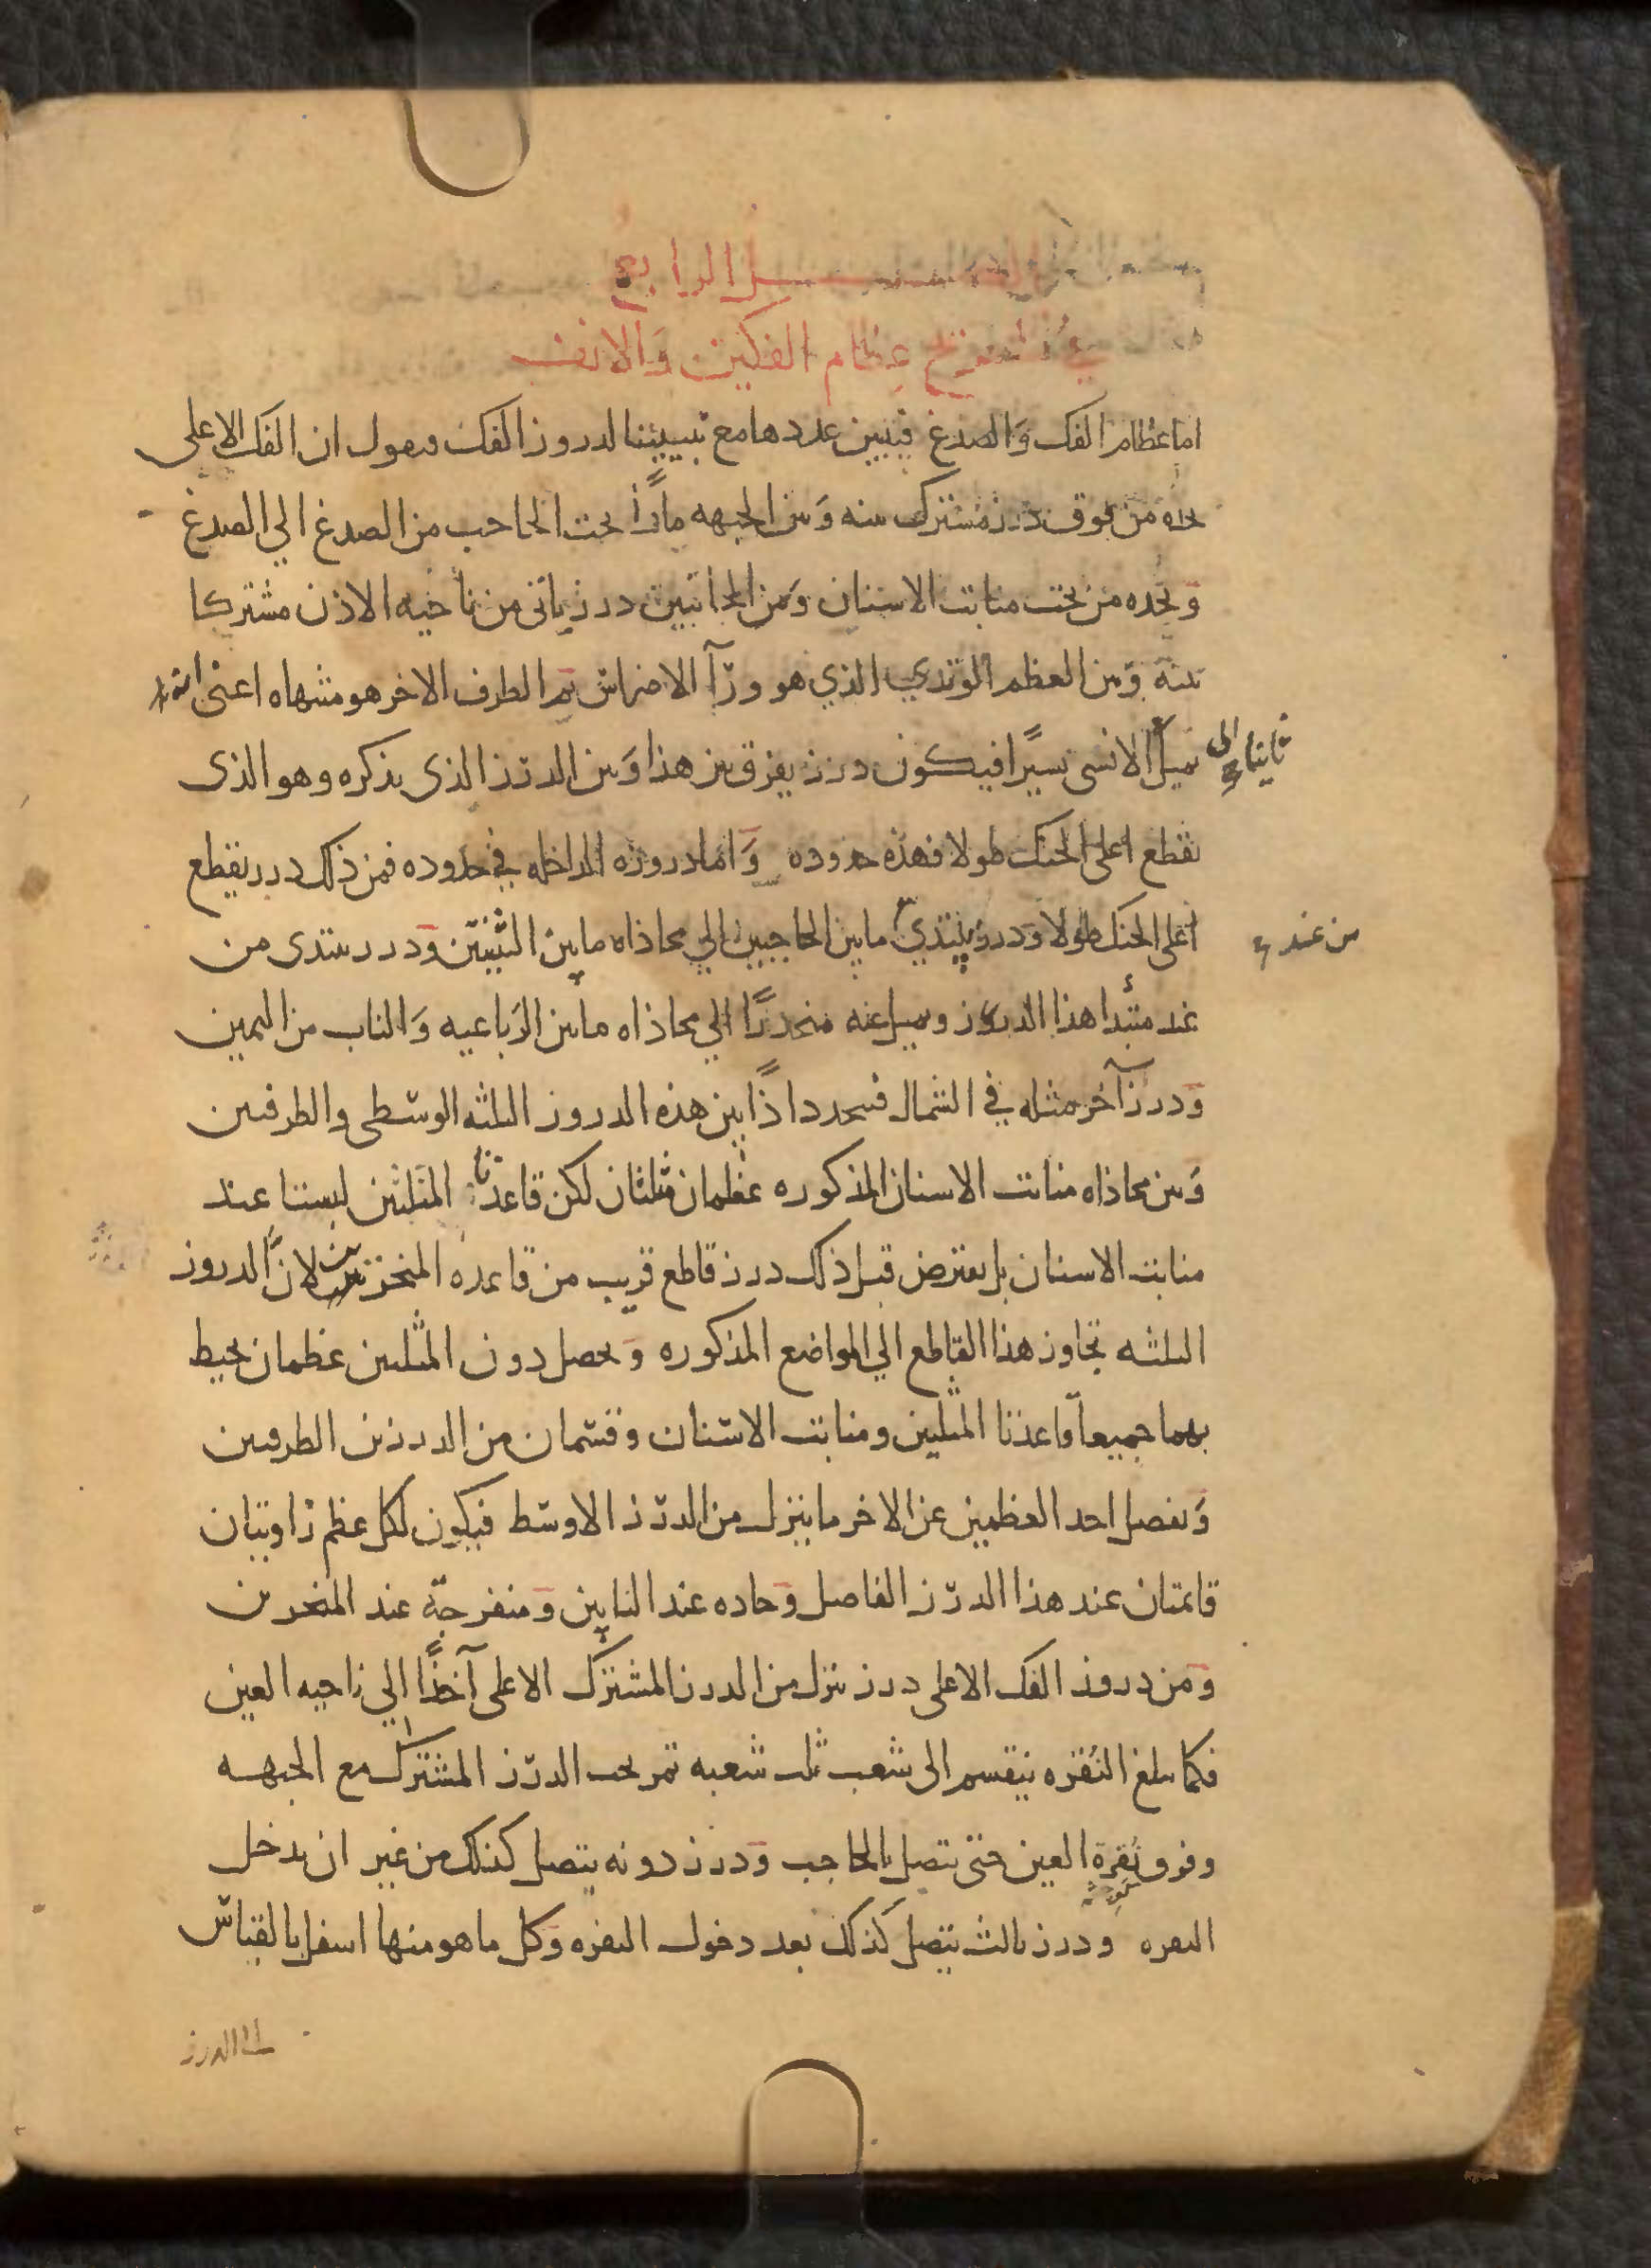 الفصل الرابع
في تشريح عظام الفكين وَالانف
اما عظام الفك وَالصدغ فيتبين عددها مع تبييننا لدروز الفك فنقول ان الفك الاعلى
يحده من فوق درز مشترك بينه وَبين الجبهه مارًا تحت الحاجب من الصدغ الي الصدغ
وَيحده من تحت منابت الاسنان وَمن الجانبين درز ياتى من ناحيه الاذن مشتركا
بينه وَبين العظم الوتدي الذي هو ورآ الاضراس ثم الطرف الاخر هو منتهاه اعنى انه
يميل الانسى يسيرًا فيكون درز يفرق بين هذا وَبين الدرز الذى نذكره وهو الذى
ثانيا الى
يقطع اعلى الحنك طولا فهذه حدوده وَاما دروزه الداخله في حدوده فمن ذلك درز يقطع
اعلى الحنك طولا وَدرز يبتدي ما بين الحاجبين الي محاذاه ما بين الثنيتين وَدرز يبتدى من
من عند
عند مبتدأ هذا الدروز ويميل عنه منحدرًا الي محاذاه ما بين الرَباعيه وَالناب من اليمين
وَدرز آخر مثله في الشمال فيتحدد اذًا بين هذه الدروز الثلثه الوسطى والطرفين
وَبين محاذاه منابت الاسنان المذكوره عظمان مثلثان لكن قاعدتا المثلثين ليستا عند
منابت الاسنان بل يعترض قبل ذلك درز قاطع قريب من قاعده المنخرين لان الدروز
الثلثه تجاوز هذا القاطع الي المواضع المذكوره وَيحصل دون المثلثين عظمان يحيط
بهما جميعا قاعدتا المثلثين ومنابت الاسنان وقسمان من الدرزين الطرفين
وَيفصل احد العظمين عن الاخر ما ينزل من الدرز الاوسط فيكون لكل عظم زاويتان
قايمتان عند هذا الدرز الفاصل وَحاده عند النابين وَمنفرجة عند المنخرين
وَمن دروز الفك الاعلى درز ينزل من الدرز المشترك الاعلى آخذًا الي ناحيه العين
فكما يبلغ النُقره ينقسم الى شعب ثلث شعبه تمر تحت الدرز المشترك مع الجبهه
وفوق نُقرة العين حتى يتصل بالحاجب وَدرز دونه يتصل كذلك من غير ان يدخل
النقره ودرز ثالث يتصل كذلك بعد دخول النقره وَكل ما هو منها اسفل بالقياس
الى الدرز